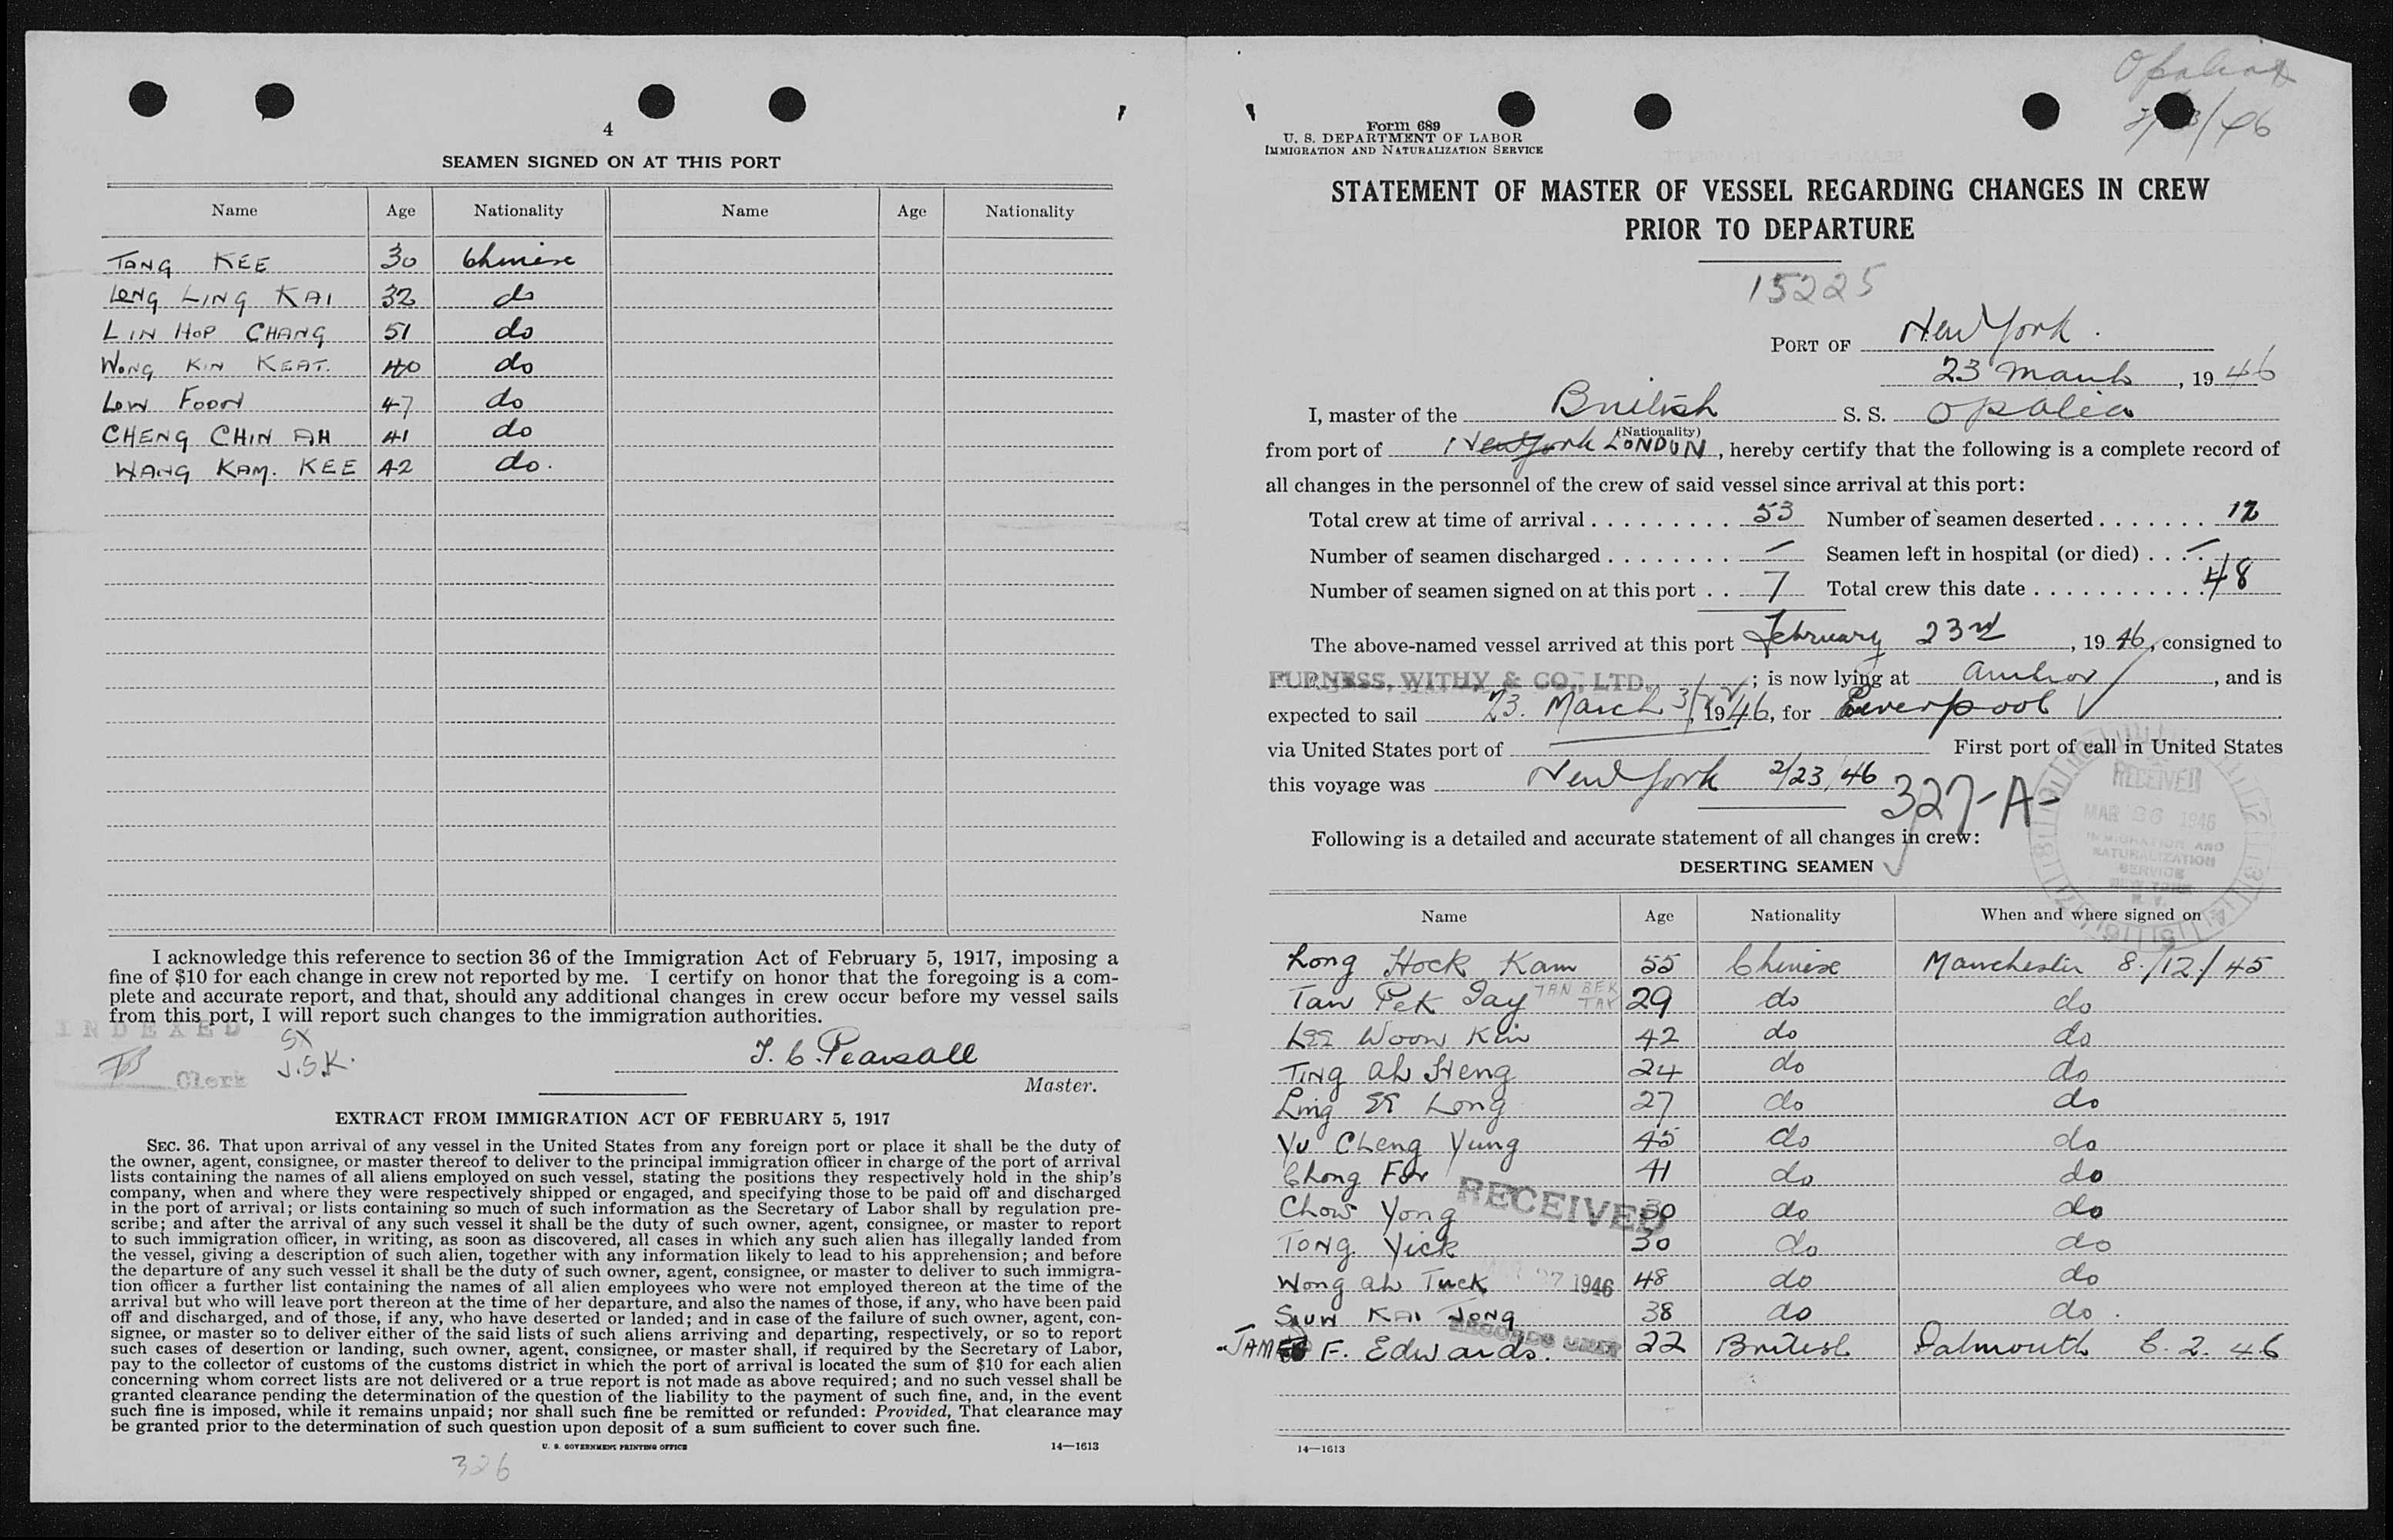 4
SEAMEN SIGNED ON AT THIS PORT
Name Age Nationality Name Age Nationality
TANG KEE 30 Chinese
LONG LING KAI 32 do
LIN HOP CHANG 51 do
WONG KIN KEAT. 40 do
LOW FOON 47 do
CHENG CHIN AH 41 do
WANG KAM. KEE 42 do.
I acknowledge this reference to section 36 of the Immigration Act of February 5, 1917, imposing a
fine of $10 for each change in crew not reported by me. I certify on honor that the foregoing is a com-
plete and accurate report, and that, should any additional changes in crew occur before my vessel sails
from this port, I will report such changes to the immigration authorities.
INDEXED
J.S.K.
Clerk
T. C. Pearsall
Master.
EXTRACT FROM IMMIGRATION ACT OF FEBRUARY 5, 1917
SEC. 36. That upon arrival of any vessel in the United States from any foreign port or place it shall be the duty of
the owner, agent, consignee, or master thereof to deliver to the principal immigration officer in charge of the port of arrival
lists containing the names of all aliens employed on such vessel, stating the positions they respectively hold in the ship's
company, when and where they were respectively shipped or engaged, and specifying those to be paid off and discharged
in the port of arrival; or lists containing so much of such information as the Secretary of Labor shall by regulation pre-
scribe; and after the arrival of any such vessel it shall be the duty of such owner, agent, consignee, or master to report
to such immigration officer, in writing, as soon as discovered, all cases in which any such alien has illegally landed from
the vessel, giving a description of such alien, together with any information likely to lead to his apprehension; and before
the departure of any such vessel it shall be the duty of such owner, agent, consignee, or master to deliver to such immigra-
tion officer a further list containing the names of all alien employees who were not employed thereon at the time of the
arrival but who will leave port thereon at the time of her departure, and also the names of those, if any, who have been paid
off and discharged, and of those, if any, who have deserted or landed; and in case of the failure of such owner, agent, con-
signee, or master so to deliver either of the said lists of such aliens arriving and departing, respectively, or so to report
such cases of desertion or landing, such owner, agent, consignee, or master shall, if required by the Secretary of Labor,
pay to the collector of customs of the customs district in which the port of arrival is located the sum of $10 for each alien
concerning whom correct lists are not delivered or a true report is not made as above required; and no such vessel shall be
granted clearance pending the determination of the question of the liability to the payment of such fine, and, in the event
such fine is imposed, while it remains unpaid; nor shall such fine be remitted or refunded: Provided, That clearance may
be granted prior to the determination of such question upon deposit of a sum sufficient to cover such fine.
U. S. GOVERNMENT PRINTING OFFICE 14—1613
326
Form 689
U. S. DEPARTMENT OF LABOR
IMMIGRATION AND NATURALIZATION SERVICE
STATEMENT OF MASTER OF VESSEL REGARDING CHANGES IN CREW
PRIOR TO DEPARTURE
15225
PORT OF New York.
23 March, 1946
I, master of the British S. S. Opalia
(Nationality)
from port of New York LONDON, hereby certify that the following is a complete record of
all changes in the personnel of the crew of said vessel since arrival at this port:
Total crew at time of arrival . . . . . . . . . 53 Number of seamen deserted . . . . . . . 12
Number of seamen discharged . . . . . . . . — Seamen left in hospital (or died) . . . —
Number of seamen signed on at this port . . 7 Total crew this date . . . . . . . . . . . 48
The above-named vessel arrived at this port February 23rd, 1946, consigned to
FURNESS, WITHY & CO., LTD.; is now lying at Anchor, and is
expected to sail 23. March, 1946, for Liverpool
via United States port of — First port of call in United States
this voyage was New York 2/23/46
327-A-
RECEIVED
MAR 26 1946
IMMIGRATION AND
NATURALIZATION
SERVICE
NEW YORK
N. Y.
Following is a detailed and accurate statement of all changes in crew:
DESERTING SEAMEN
Name Age Nationality When and where signed on
Long Hock Kam 55 Chinese Manchester 8/12/45
Tan Pek Jay TAN BEK TAY 29 do do
Lee Woon Kin 42 do do
Ting Ah Heng 24 do do
Ling Long 27 do do
Yu Cheng Yung 45 do do
Chong For 41 do do
Chow Yong 30 do do
Tong Yick 30 do do
Wong Ah Tuck 48 do do
KAI Jong 38 do do.
JAMES F. Edwards. 22 British Falmouth 6. 2. 46
RECEIVED
27 1946
14—1613